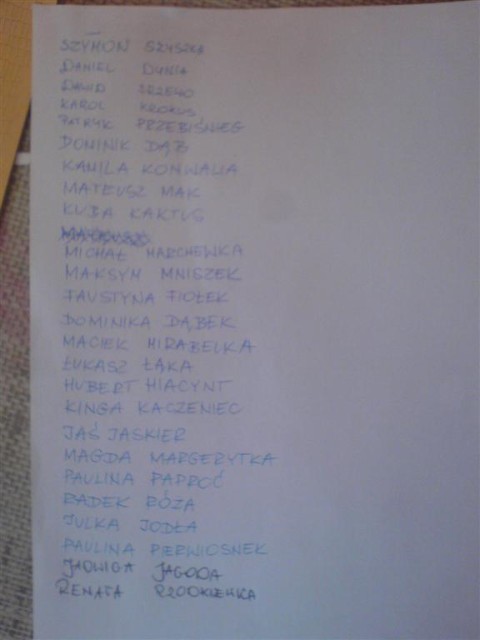 SZYMON SZYSZKA
DANIEL DYNIA
DAWID DRZEWO
KAROL KROKUS
PATRYK PRZEBIŚNIEG
DOMINIK DĄB
KAMILA KONWALIA
MATEUSZ MAK
KUBA KAKTUS
MICHAŁ MARCHEWKA
MAKSYM MNISZEK
FAUSTYNA FIOŁEK
DOMINIKA DĄBEK
MACIEK MIRABELKA
ŁUKASZ ŁĄKA
HUBERT HIACYNT
KINGA KACZENIEC
JAŚ JASKIER
MAGDA MARGERYTKA
PAULINA PAPROĆ
RADEK RÓŻA
JULKA JODŁA
PAULINA PIERWIOSNEK
JADWIGA JAGODA
RENATA RZODKIEWKA